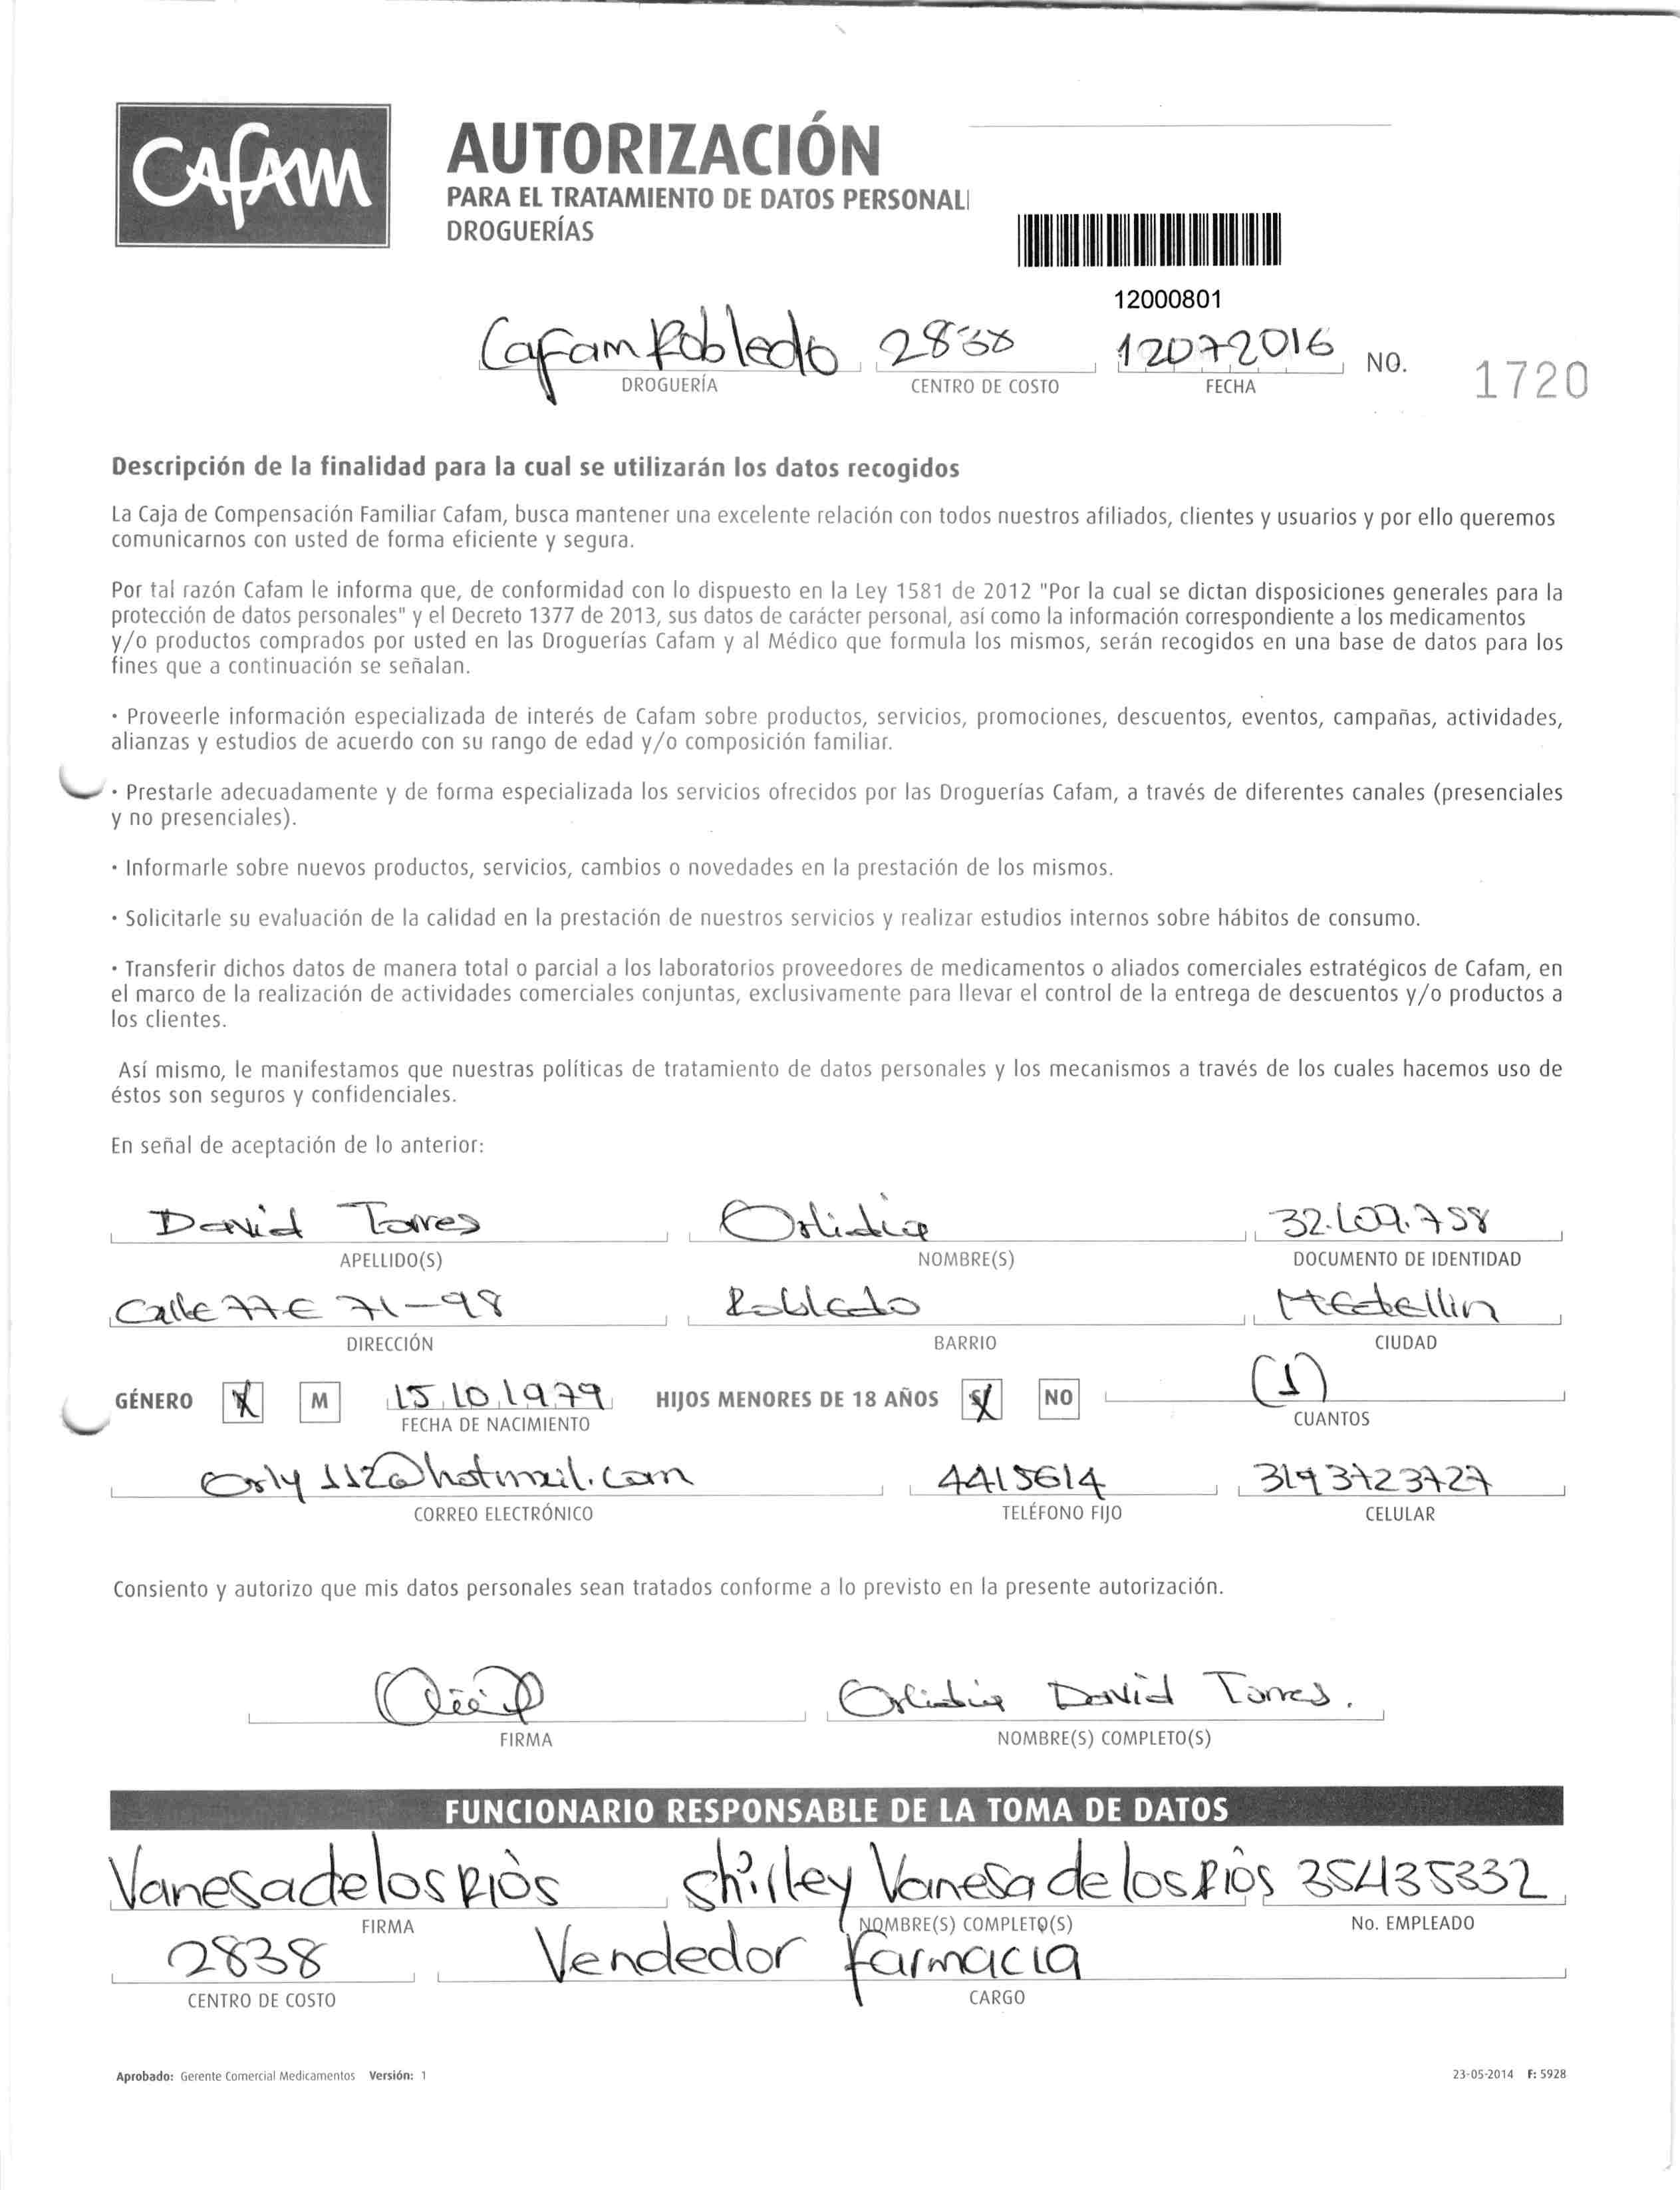 CAFAM
AUTORIZACIÓN
PARA EL TRATAMIENTO DE DATOS PERSONAL
DROGUERÍAS
12000801
Cafam Robledo 2838 12072016 NO. 1720
DROGUERÍA CENTRO DE COSTO FECHA
Descripción de la finalidad para la cual se utilizarán los datos recogidos
La Caja de Compensación Familiar Cafam, busca mantener una excelente relación con todos nuestros afiliados, clientes y usuarios y por ello queremos
comunicarnos con usted de forma eficiente y segura.
Por tal razón Cafam le informa que, de conformidad con lo dispuesto en la Ley 1581 de 2012 "Por la cual se dictan disposiciones generales para la
protección de datos personales" y el Decreto 1377 de 2013, sus datos de carácter personal, así como la información correspondiente a los medicamentos
y/o productos comprados por usted en las Droguerías Cafam y al Médico que formula los mismos, serán recogidos en una base de datos para los
fines que a continuación se señalan.
· Proveerle información especializada de interés de Cafam sobre productos, servicios, promociones, descuentos, eventos, campañas, actividades,
alianzas y estudios de acuerdo con su rango de edad y/o composición familiar.
· Prestarle adecuadamente y de forma especializada los servicios ofrecidos por las Droguerías Cafam, a través de diferentes canales (presenciales
y no presenciales).
· Informarle sobre nuevos productos, servicios, cambios o novedades en la prestación de los mismos.
· Solicitarle su evaluación de la calidad en la prestación de nuestros servicios y realizar estudios internos sobre hábitos de consumo.
· Transferir dichos datos de manera total o parcial a los laboratorios proveedores de medicamentos o aliados comerciales estratégicos de Cafam, en
el marco de la realización de actividades comerciales conjuntas, exclusivamente para llevar el control de la entrega de descuentos y/o productos a
los clientes.
Así mismo, le manifestamos que nuestras políticas de tratamiento de datos personales y los mecanismos a través de los cuales hacemos uso de
éstos son seguros y confidenciales.
En señal de aceptación de lo anterior:
David Torres Orlidia
APELLIDO(S) NOMBRE(S) DOCUMENTO DE IDENTIDAD
Calle 77E 71-98 Robledo Medellin
DIRECCIÓN BARRIO CIUDAD
GÉNERO M 15.10.1979 HIJOS MENORES DE 18 AÑOS SI NO (1)
FECHA DE NACIMIENTO CUANTOS
Orly112@hotmail.com 4415614 3193723727
CORREO ELECTRÓNICO TELÉFONO FIJO CELULAR
Consiento y autorizo que mis datos personales sean tratados conforme a lo previsto en la presente autorización.
Orlidia David Torres.
FIRMA NOMBRE(S) COMPLETO(S)
FUNCIONARIO RESPONSABLE DE LA TOMA DE DATOS
Vanesa de los Riòs Shirley Vanesa de los Riòs 35435332
FIRMA NOMBRE(S) COMPLETO(S) No. EMPLEADO
2838 Vendedor Farmacia
CENTRO DE COSTO CARGO
Aprobado: Gerente Comercial Medicamentos Versión: 1 23-05-2014 F: 5928